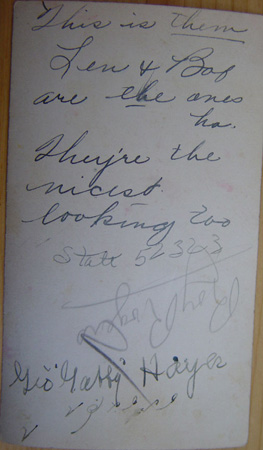 This is them
Len & Bob
are the ones
ha.
They're the
nicest
looking too
Stall 52323
Geo "Gabby" Hayes